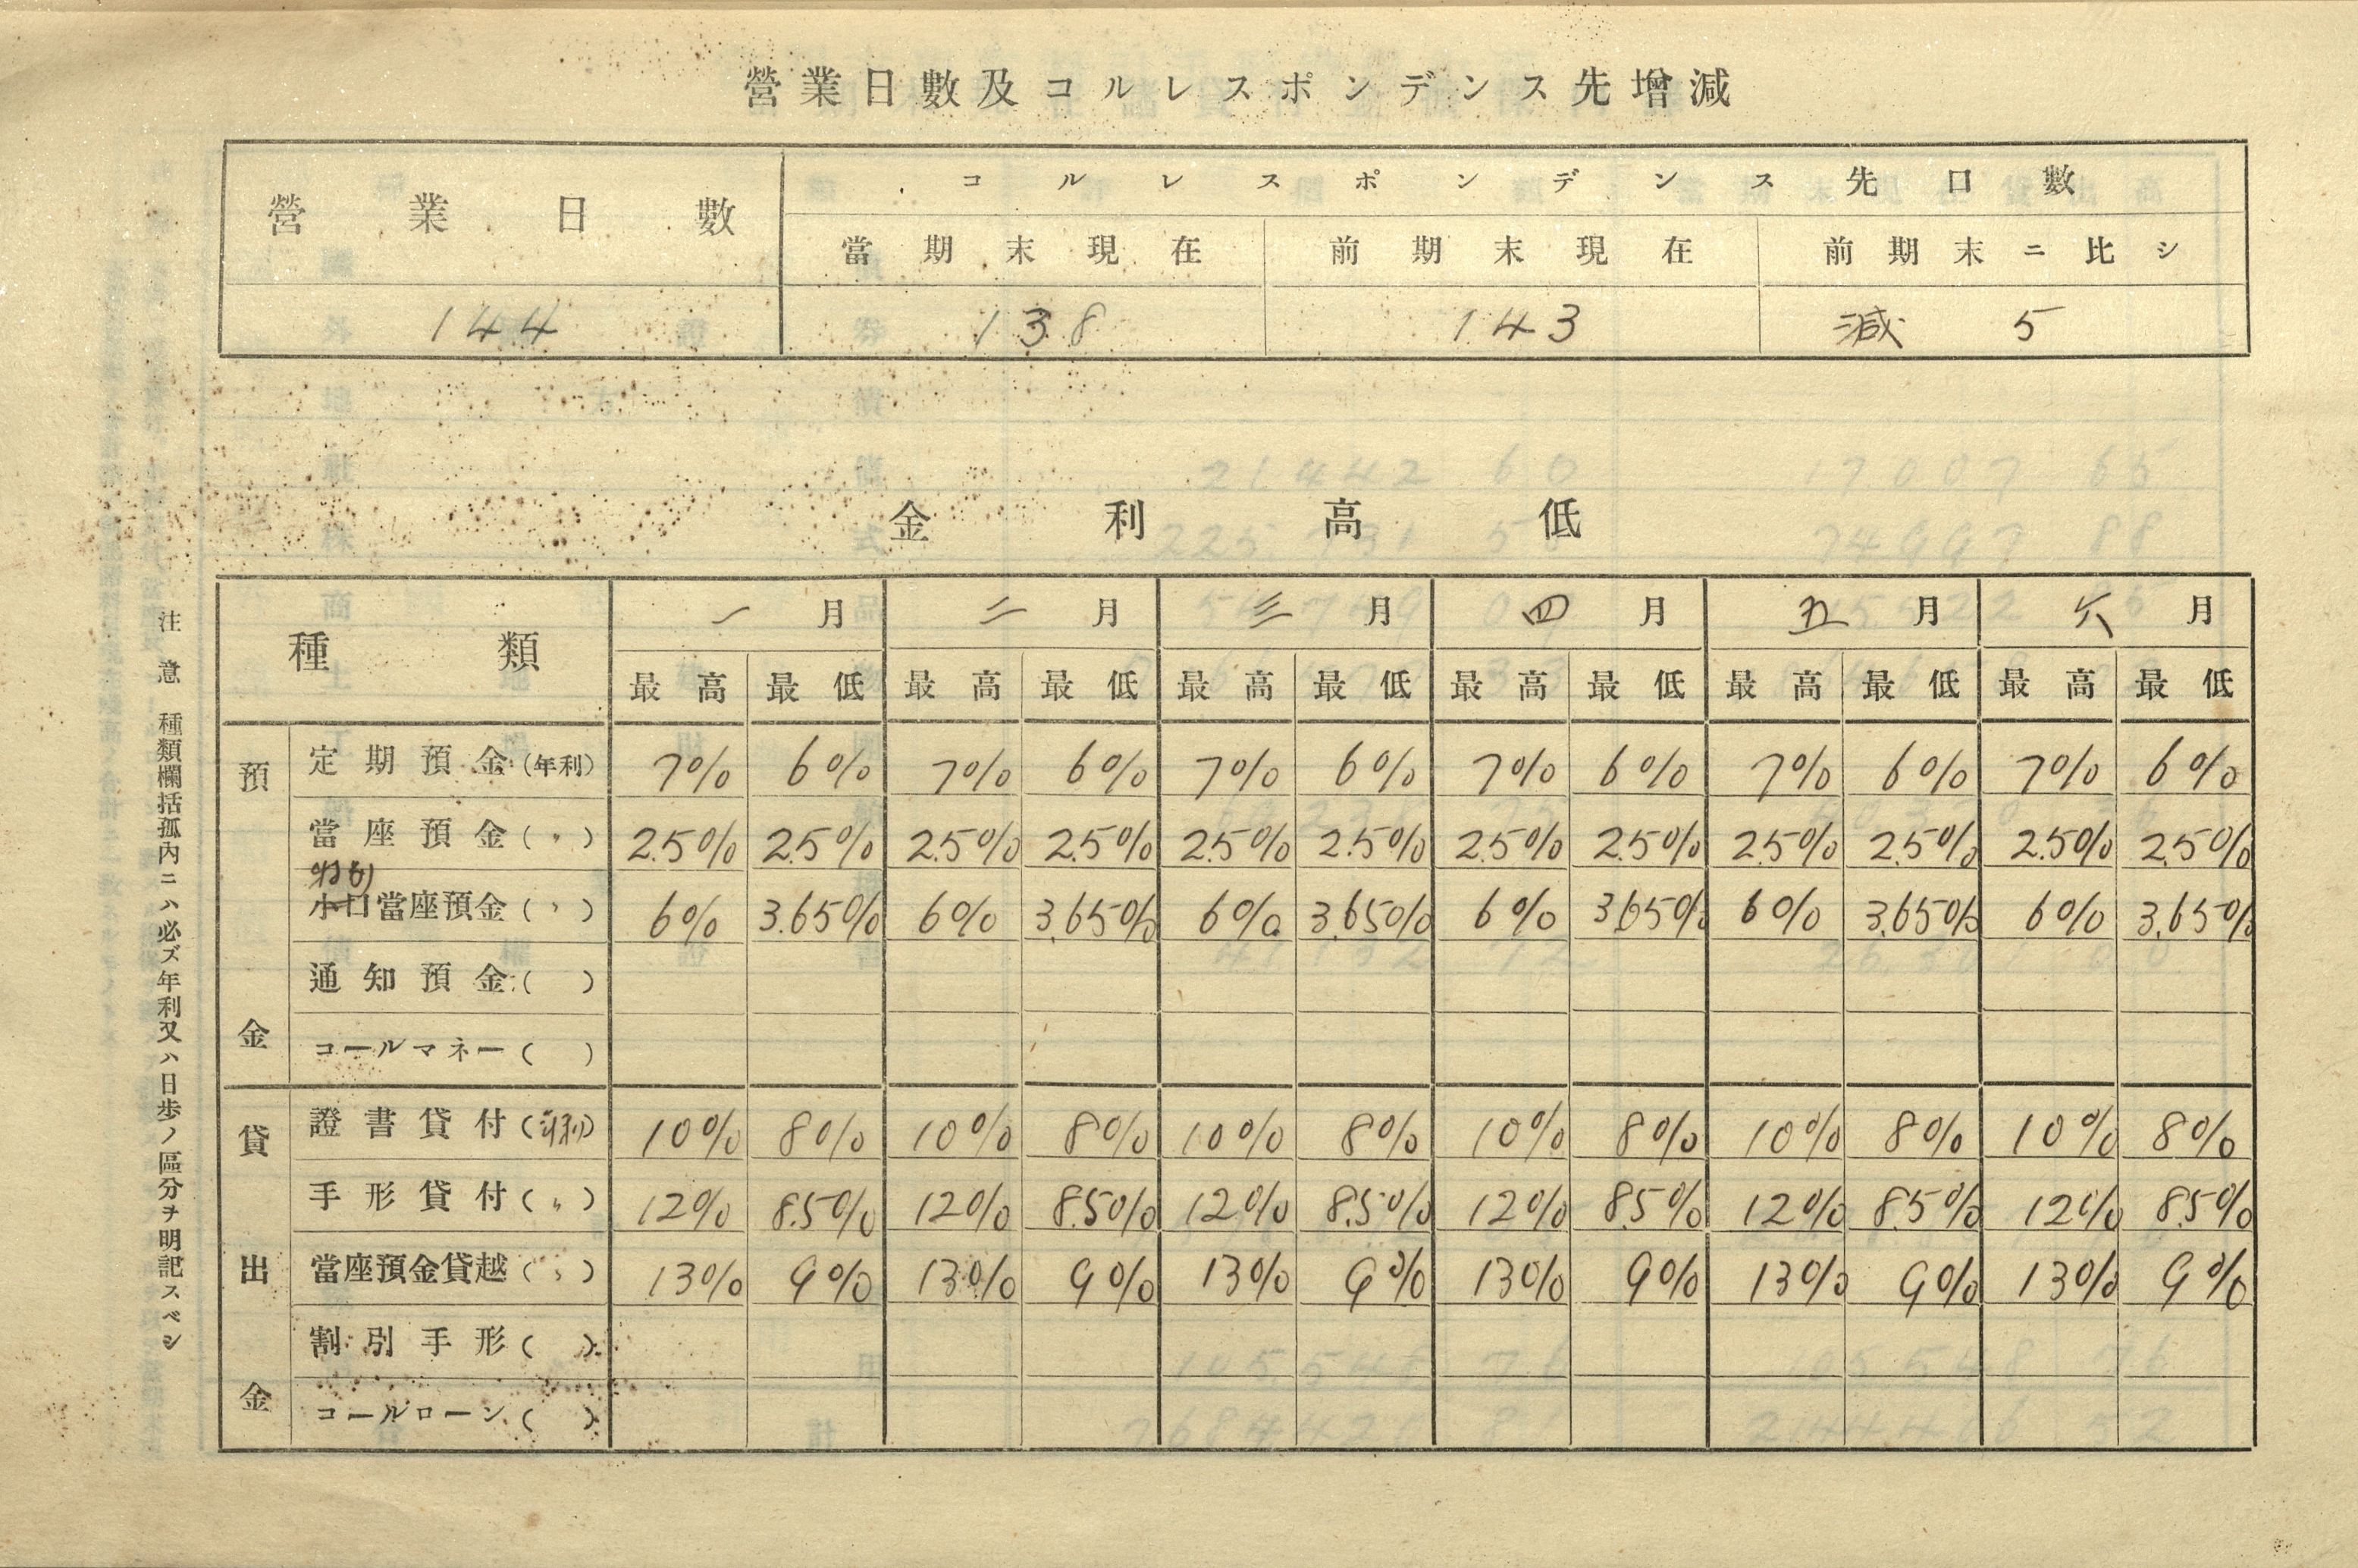 營業日數及コルレスポンデンス先增減
營業日數 コルレスポンデンス先口數
當期末現在 前期末現在 前期末ニ比シ
144 138 143 減 5
金利高低
種類 一月 二月 三月 四月 五月 六月
最高 最低 最高 最低 最高 最低 最高 最低 最高 最低 最高 最低
預金
定期預金(年利) 7% 6% 7% 6% 7% 6% 7% 6% 7% 6% 7% 6%
當座預金(〃) 2.5% 2.5% 2.5% 2.5% 2.5% 2.5% 2.5% 2.5% 2.5% 2.5% 2.5% 2.5%
特別
小口當座預金(〃) 6% 3.65% 6% 3.65% 6% 3.65% 6% 3.65% 6% 3.65% 6% 3.65%
通知預金( )
コールマネー( )
貸出金
證書貸付(年利) 10% 8% 10% 8% 10% 8% 10% 8% 10% 8% 10% 8%
手形貸付(〃) 12% 8.5% 12% 8.5% 12% 8.5% 12% 8.5% 12% 8.5% 12% 8.5%
當座預金貸越(〃) 13% 9% 13% 9% 13% 9% 13% 9% 13% 9% 13% 9%
割引手形( )
コールローン( )
注意 種類欄括孤內ニハ必ズ年利又ハ日步ノ區分ヲ明記スベシ